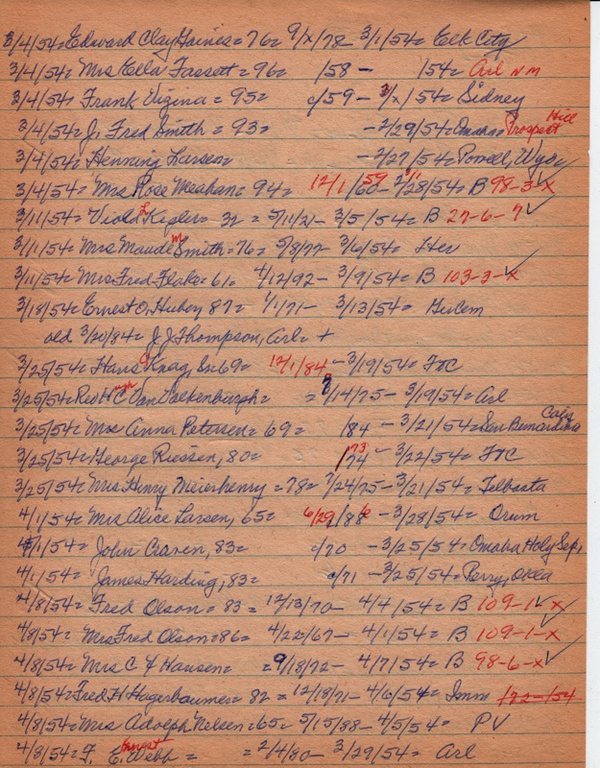 3/4/54= Edward Clay Gaines = 76= 9/x/78- 3/1/54= Elk City
3/4/54= Mrs Ella Fassett = 96= /58 - /54= Arl N M
3/4/54= Frank Vizina = 95= c/59 - 3/x/54= Sidney
3/4/54= J, Fred Smith = 93= -2/29/54= Omaha Prospect Hill
3/4/54= Henning Larsen= -2/27/54= Powell, Wyo,
3/4/54= Mrs Rose Meahan= 94= 12/1/60 59 - 2/28/54= B 98-3-x
3/11/54= Viola Kegler= 32 = 5/11/21- 3/5/54= B 27-6-7
3/11/54= Mrs Maude M Smith= 76= 5/8/77- 3/6/54= Her
3/11/54= Mrs Fred Flake= 61= 4/12/92- 3/9/54= B 103-3-x
3/18/54= Ernest O, Hubey 87= 1/1/71- 3/13/54=
old 3/20/84= J J Thompson, Arl= +
3/25/54= Hans Knag, Sr= 69= 12/1/84 -3/19/54= FTC
3/25/54= Rev H C Van Valkenburgh= = 9/14/75- 3/19/54= Arl
3/25/54= Mrs Anna Petersen= 69= /84 -3/21/54= San Bernardina Calif
3/25/54= George Riessen, 80= /74 73 -3/22/54= FTC
3/25/54= Mrs Henry Meierhenry =78= 7/24/75- 3/21/54= Telbasta
4/1/54= Mrs Alise Larsen, 65= 6/29/88 -3/28/54= Orum
4/1/54= John Craven, 83= c/70 -3/25/54= Omaha Holy Sep,
4/1/54= James Harding, 83= c/71 -3/25/54= Perry, Okla
4/8/54= Fred Olson= 83 = 12/13/70- 4/4/54= B 109-1-x
4/8/54= Mrs Fred Olson=86= 4/22/67- 4/1/54= B 109-1-x
4/8/54= Mrs C Y Hansen= =9/18/72- 4/7/54= B 98-6-x
4/8/54= Fred H Hagerbaumer= 82= 12/18/71- 4/6/54= Imm 172-154
4/8/54= Mrs Adolph Nelsen=65= 5/15/88- 4/5/54= P V
4/8/54= F. E. Webb = =2/4/80- 3/29/54= Arl